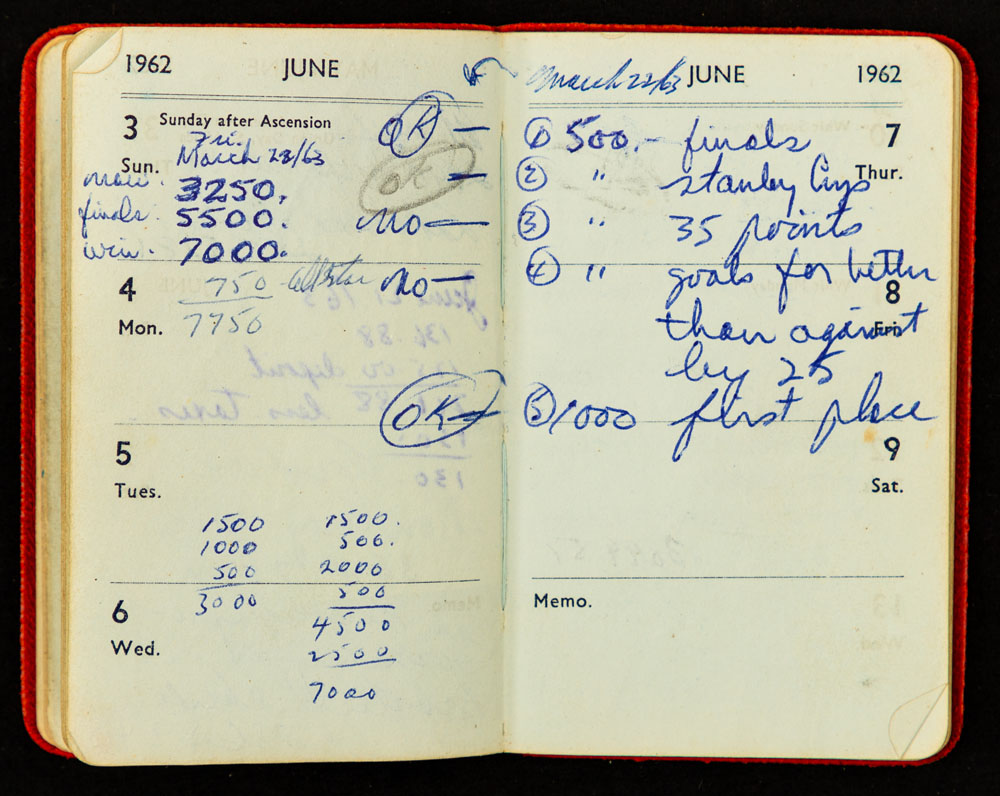 1962 JUNE
3 Sunday after Ascension OK —
Sun. Fri.
March 28/63
now. 3250. OK —
finals. 5500. no —
win. 7000.
4 750 allstar no —
Mon. 7750
OK —
5
Tues.
1500 1500.
1000 500.
500 2000
3000 500
6 4500
Wed. 2500
7000
March 22/63 JUNE 1962
① 500. - finals 7
② " stanley Cup Thur.
③ " 35 points
④ " goals for better 8
than against Fri.
by 25
⑤ 1000 first place
9
Sat.
Memo.